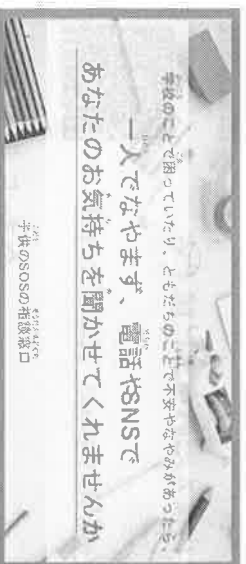 学校のことで困っていたり、ともだちのことで不安やなやみがあったら、
一人でなやまず、電話やSNSで
あなたのお気持ちを聞かせてくれませんか
子供のSOSの相談窓口